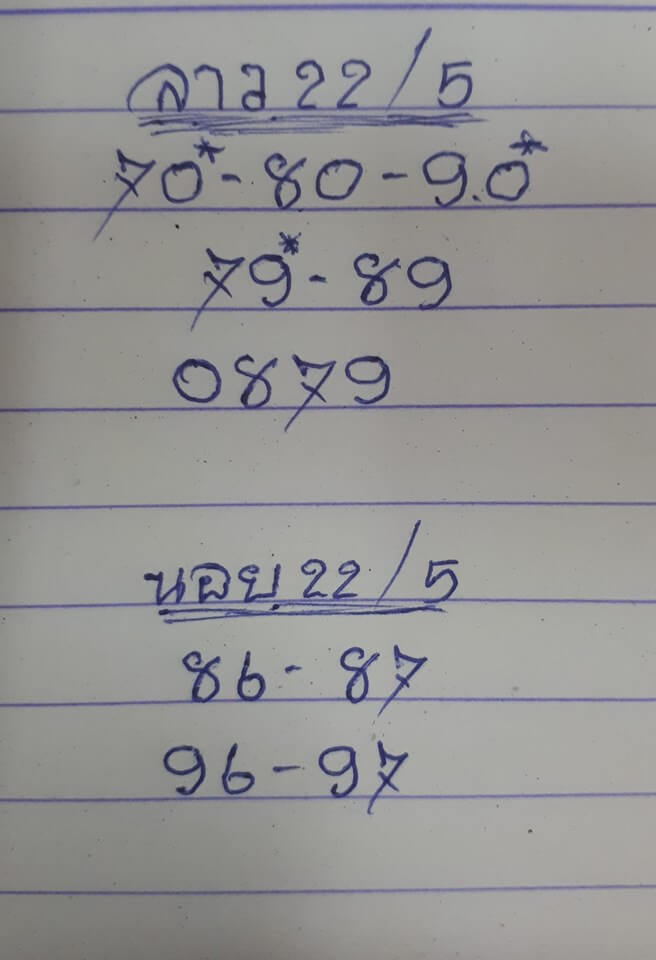 ลาว 22/5
70*-80-9.0*
79*-89
0879
นอย 22/5
86-87
96-97